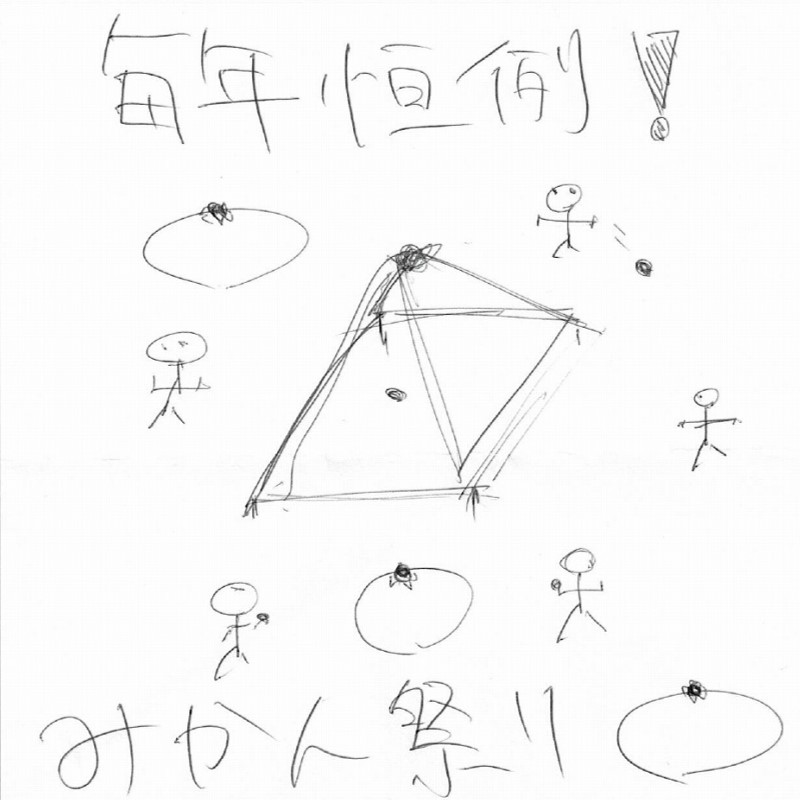 毎年恒例!
みかん祭り